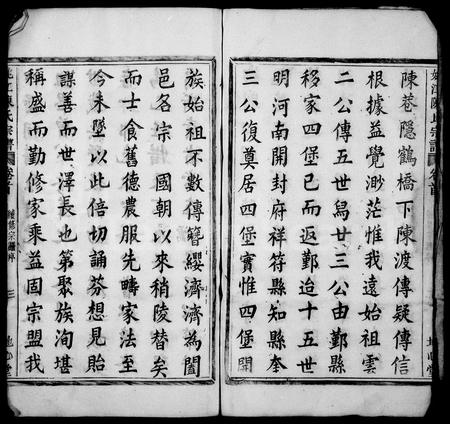 陳巷隱鶴橋下陳渡傳疑傳信
根據益覺渺茫惟我遠始祖雲
二公傳五世舄廿三公由鄞縣
移家四堡已而返鄞迨十五世
明河南開封府祥符縣知縣奎
三公復奠居四堡實惟四堡開
族始祖不數傳簪纓濟濟為闔
邑名宗國朝以來稍陵替矣
而士食舊德農服先疇家法至
今未墜以此倍切誦芬想見貽
謀善而世澤長也第聚族洵堪
稱盛而勤修家乘益固宗盟我
姚江陳氏宗譜 卷首